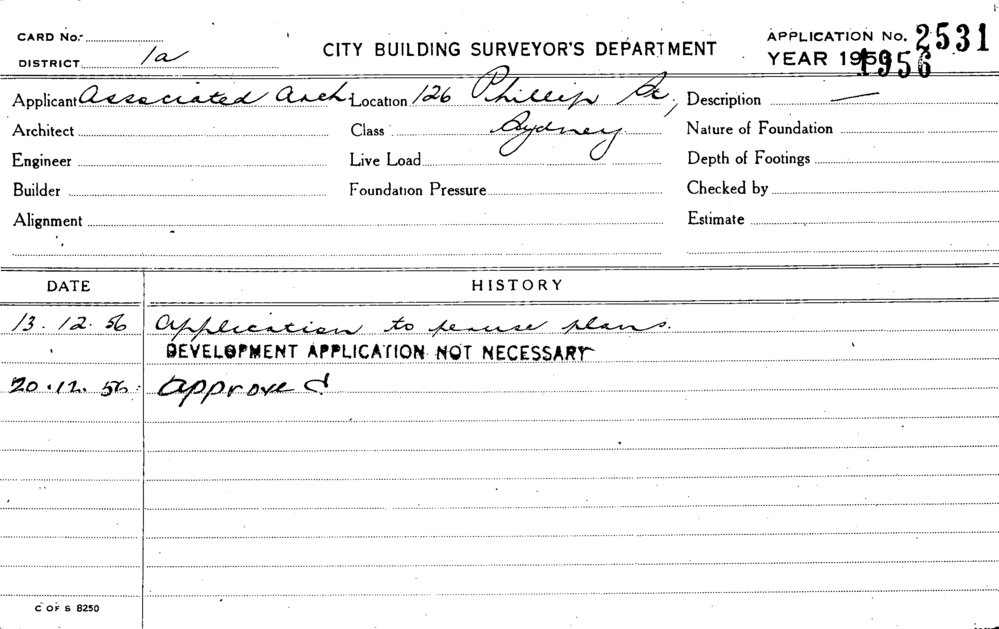 CARD No.
DISTRICT 1a
CITY BUILDING SURVEYOR'S DEPARTMENT
APPLICATION No. 2531
YEAR 1956
Applicant Associated Arch. Location 126 Phillip St, Description —
Architect Class Sydney Nature of Foundation
Engineer Live Load Depth of Footings
Builder Foundation Pressure Checked by
Alignment Estimate
DATE HISTORY
13.12.56 Application to peruse plans.
DEVELOPMENT APPLICATION NOT NECESSARY
20.12.56 Approved
C OF S 8250